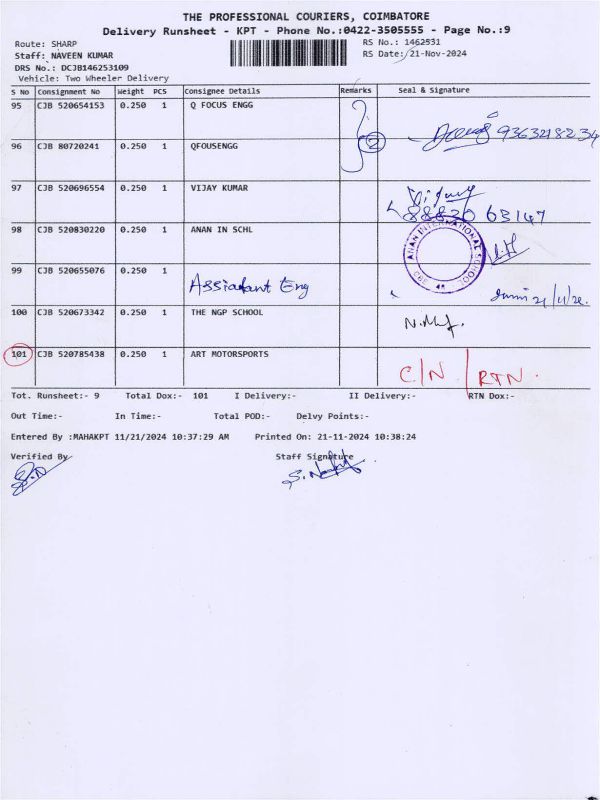 THE PROFESSIONAL COURIERS, COIMBATORE
Delivery Runsheet - KPT - Phone No.:0422-3505555 - Page No.:9
Route: SHARP RS No.: 1462531
Staff: NAVEEN KUMAR RS Date: 21-Nov-2024
DRS No.: DCJB146253109
Vehicle: Two Wheeler Delivery
S No Consignment No Weight PCS Consignee Details Remarks Seal & Signature
95 CJB 520654153 0.250 1 Q FOCUS ENGG
2 9363218234
96 CJB 80720241 0.250 1 QFOUSENGG
97 CJB 520696554 0.250 1 VIJAY KUMAR Vijay
88830 63147
98 CJB 520830220 0.250 1 ANAN IN SCHL ANAN INTERNATIONAL SCHOOL CBE
99 CJB 520655076 0.250 1
Assistant Eng 21/11/24
100 CJB 520673342 0.250 1 THE NGP SCHOOL
101 CJB 520785438 0.250 1 ART MOTORSPORTS
C/N / RTN.
Tot. Runsheet:- 9 Total Dox:- 101 I Delivery:- II Delivery:- RTN Dox:-
Out Time:- In Time:- Total POD:- Delvy Points:-
Entered By :MAHAKPT 11/21/2024 10:37:29 AM Printed On: 21-11-2024 10:38:24
Verified By Staff Signature